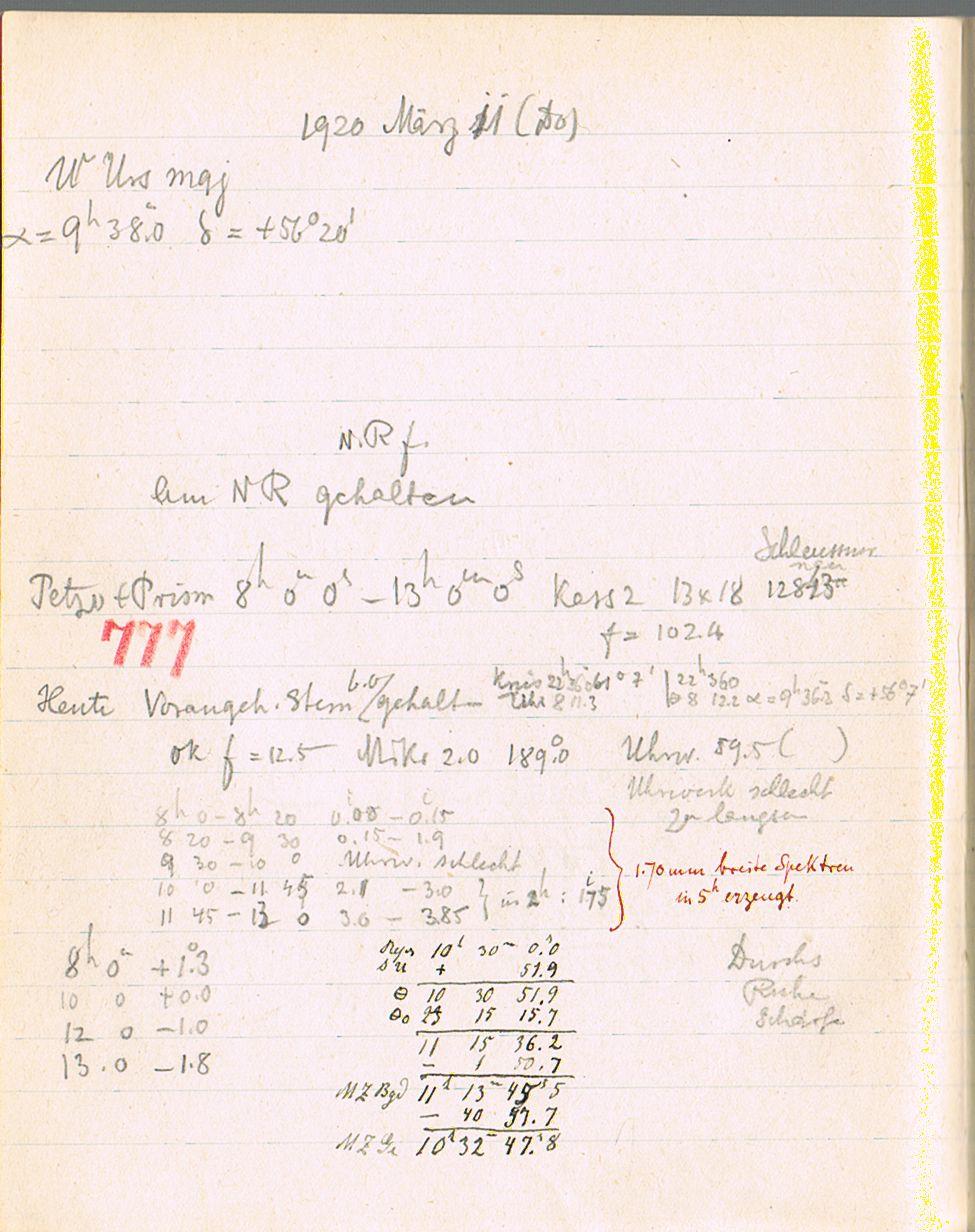 1920 März 11 (Do)
W Urs maj
α = 9h 38.0 δ = +56° 20'
N.R f.
Am NR gehalten
Schleussner
Petzv + Prism 8h 0m 0s – 13h 0m 0s Kass 2 13 x 18
f = 102.4
777
Heute Vorangeh. Stern gehalt
Kreis 22h 36.0 61° 7' | 22h 36.0
Uhr 8 11.3 | θ 8 12.2 α = 9h 36.2 δ = +56° 7'
ok f = 12.5 Mikr 2.0 189.0 Uhrw. 59.5 ( )
Uhrwerk schlecht
zu langsam
8h 0 – 8h 20 0.00 – 0.15
8 20 – 9 30 0.15 – 1.9
9 30 – 10 0 Uhrw. schlecht
10 0 – 11 45 2.1 – 3.0
11 45 – 13 0 3.0 – 3.85 } in 2h : 1.75
1.70 mm breite Spektren
in 5h erzeugt.
8h 0m +1.3
10 0 +0.0
12 0 –1.0
13.0 –1.8
10h 30m 0.0
+ 51.9
θ 10 30 51.9
θ0 23 15 15.7
11 15 36.2
– 1 50.7
MZ Bgd 11h 13m 45s 5
– 40 57.7
MZ Gr 10h 32m 47.s8
Durchs
Ruhe
Schärfe